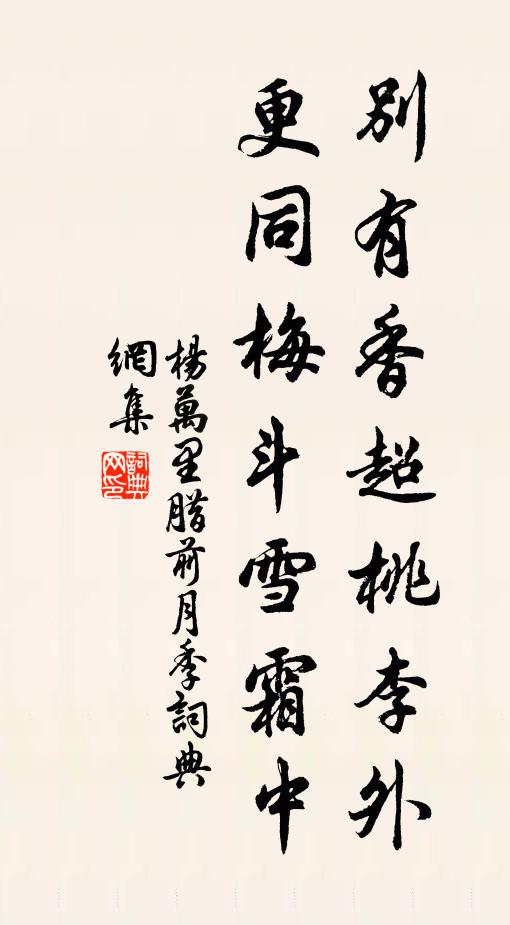 別有香超桃李外
更同梅斗雪霜中
楊萬里腊前月季詞典
網集
詞典
网印